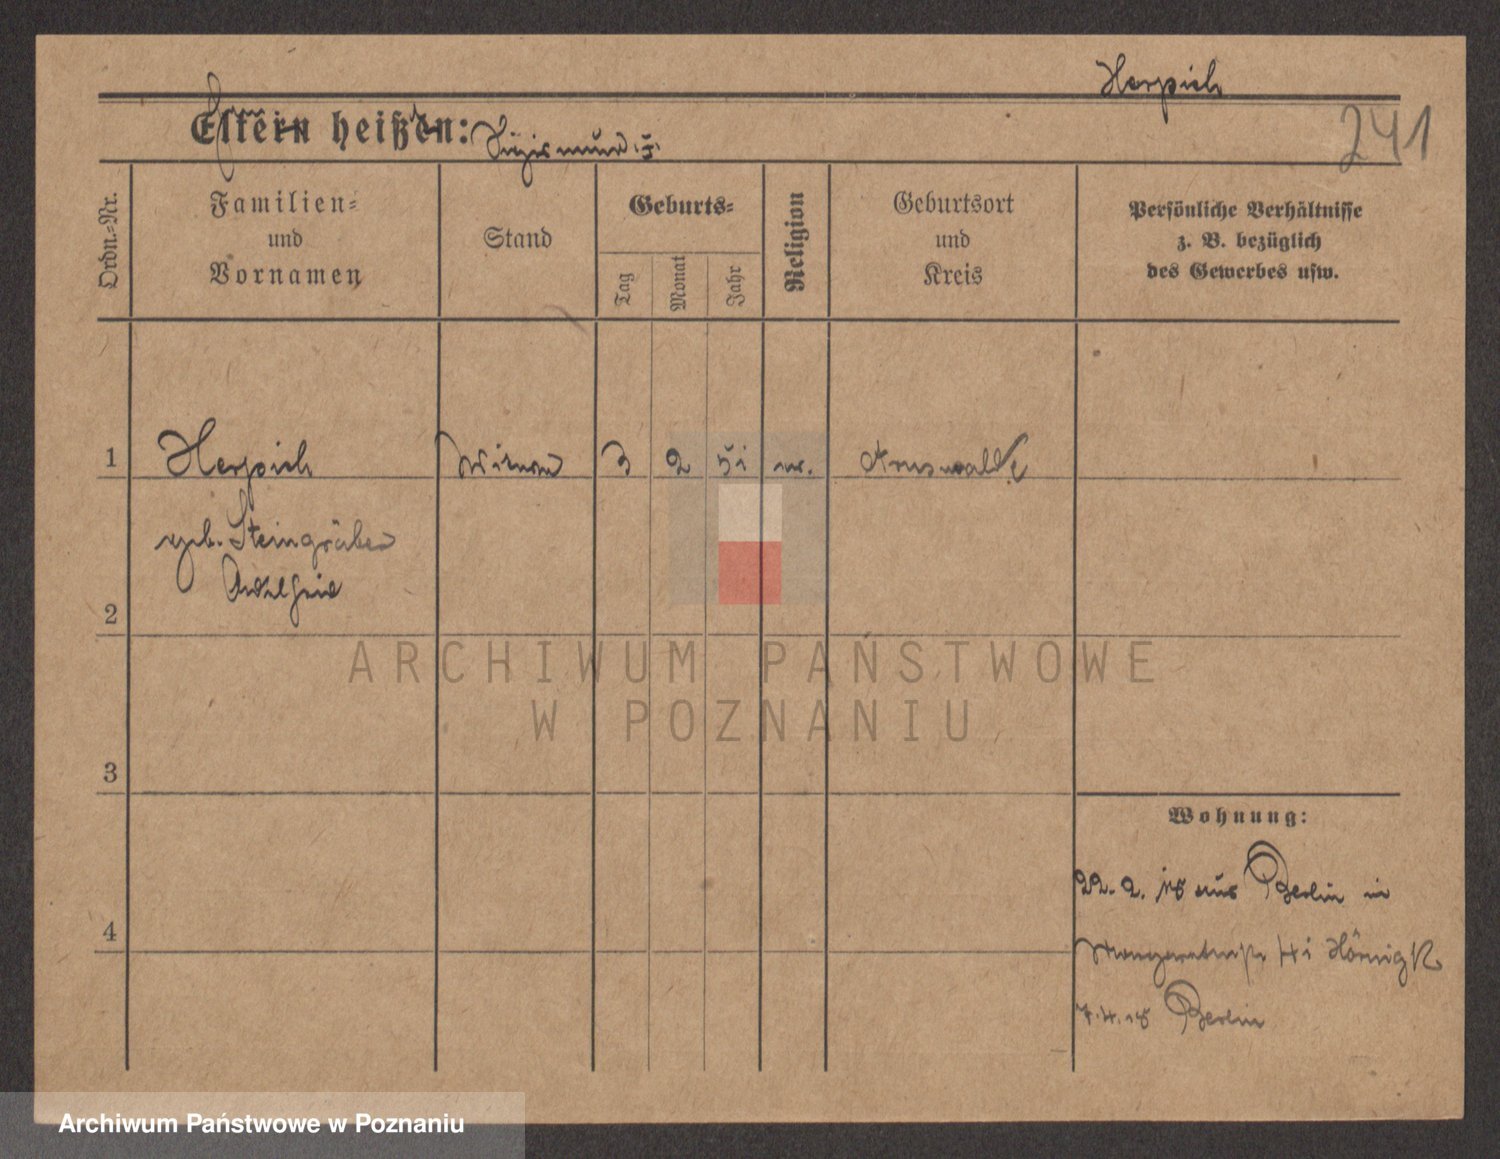 Herpich
241
Eltern heißen: Sigismund
Ordn.-Nr.
Familien-
und
Vornamen
Stand
Geburts-
Tag
Monat
Jahr
Religion
Geburtsort
und
Kreis
Persönliche Verhältnisse
z. B. bezüglich
des Gewerbes usw.
1 Herpich Witwe 3 2 51 ev. Arnswalde
geb. Steingräber
Adelheid
2
ARCHIWUM PAŃSTWOWE
W POZNANIU
3
Wohnung:
22. 2. 18 aus Berlin in
4
41
7. 4. 18 Berlin
Archiwum Państwowe w Poznaniu